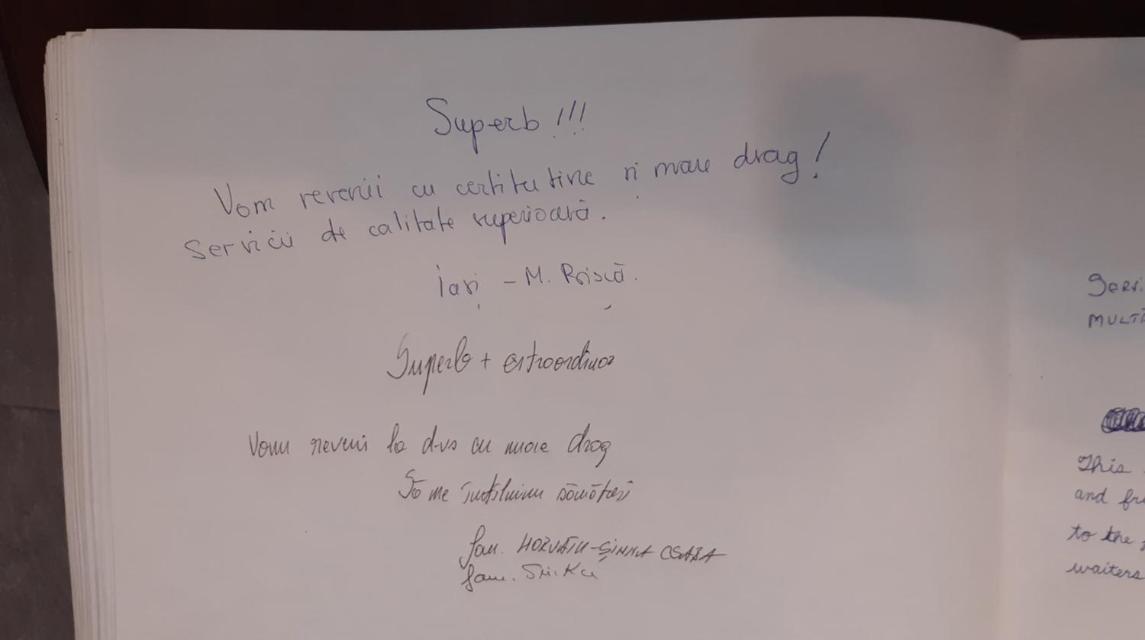 Superb !!!
Vom revenii cu certitutine și mare drag!
Servicii de calitate superioară.
Iași - M. Prisca.
Superb + extraordinar
Vom reveni la d-vs cu mare drag
Să ne întîlnim sănătoși
fam. HORVÁTH-SINKA CSABA
fam.
Ser
MULT
This
and fr
to the
waiters